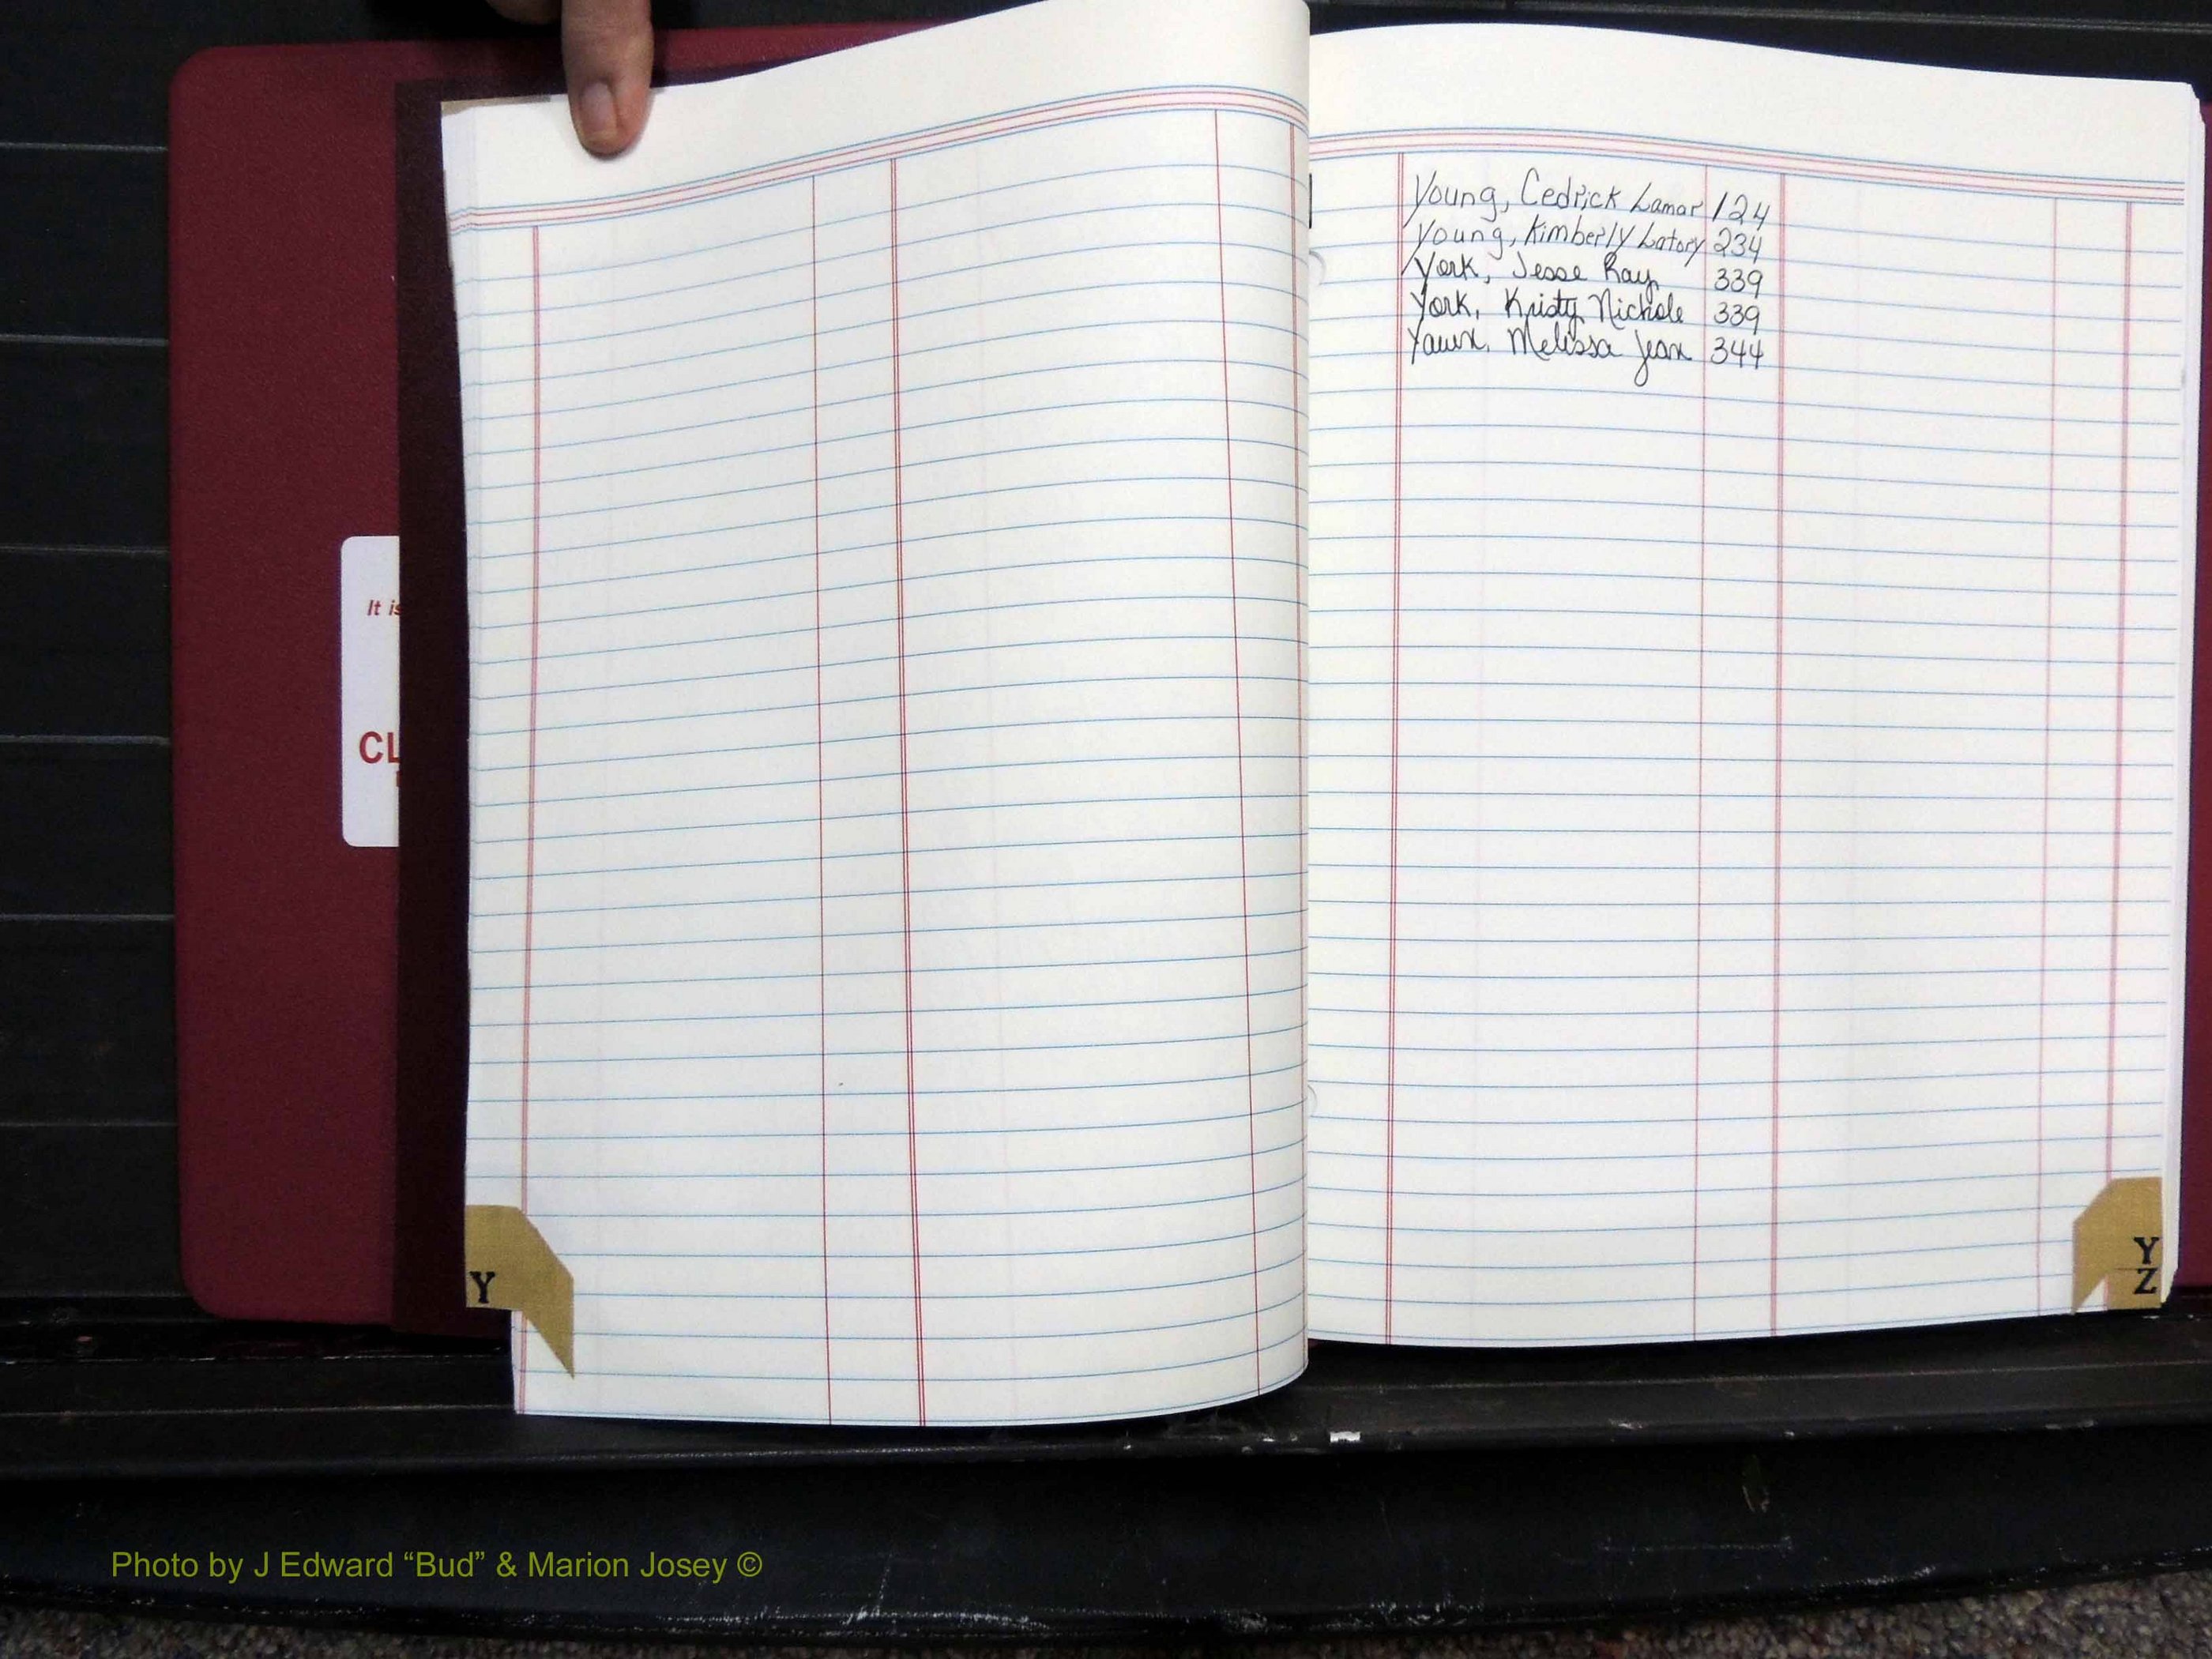 Young, Cedrick Lamar 124
Young, Kimberly Latory 234
York, Jesse Ray 339
York, Kristy Nichole 339
Melissa Jean 344
It is
CL
Y
Y
Z
Photo by J Edward “Bud” & Marion Josey ©